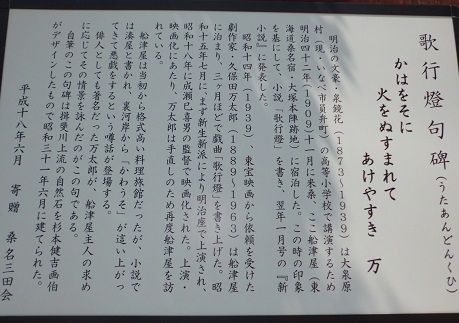 歌行燈句碑（うたあんどんくひ）
かはをそに
火をぬすまれて
あけやすき 万
明治の文豪・泉鏡花（1873～1939）は大泉原
村（現・いなべ市員弁町）の高等小学校で講演するため
明治四十二年（1909）十一月に来桑、ここ船津屋（東
海道桑名宿・大塚本陣跡地）に宿泊した。この時の印象
を基にして、小説「歌行燈」を書き、翌年一月号の『新
小説』に発表した。
昭和十四年（1939）、東宝映画から依頼を受けた
劇作家・久保田万太郎（1889～1963）は船津屋
に泊まり、三ヶ月ほどで戯曲「歌行燈」を書き上げた。昭
和十五年七月に、まず新生新派により明治座で上演され、
昭和十八年に成瀬巳喜男の監督で映画化された。上演・
映画化にあたり、万太郎は手直しのため再度船津屋を訪
れている。
船津屋は当初から格式高い料理旅館だったが、小説で
は湊屋と書かれ、裏河岸から「かわうそ」が這い上がっ
てきて悪戯をするという噂話が登場する。
俳人としても著名だった万太郎が、船津屋主人の求め
に応じてその情景を詠んだのがこの句である。
自筆のこの句碑は揖斐川上流の自然石を杉本健吉画伯
がデザインしたもので昭和三十一年六月に建てられた。
平成十八年六月 寄贈 桑名三田会